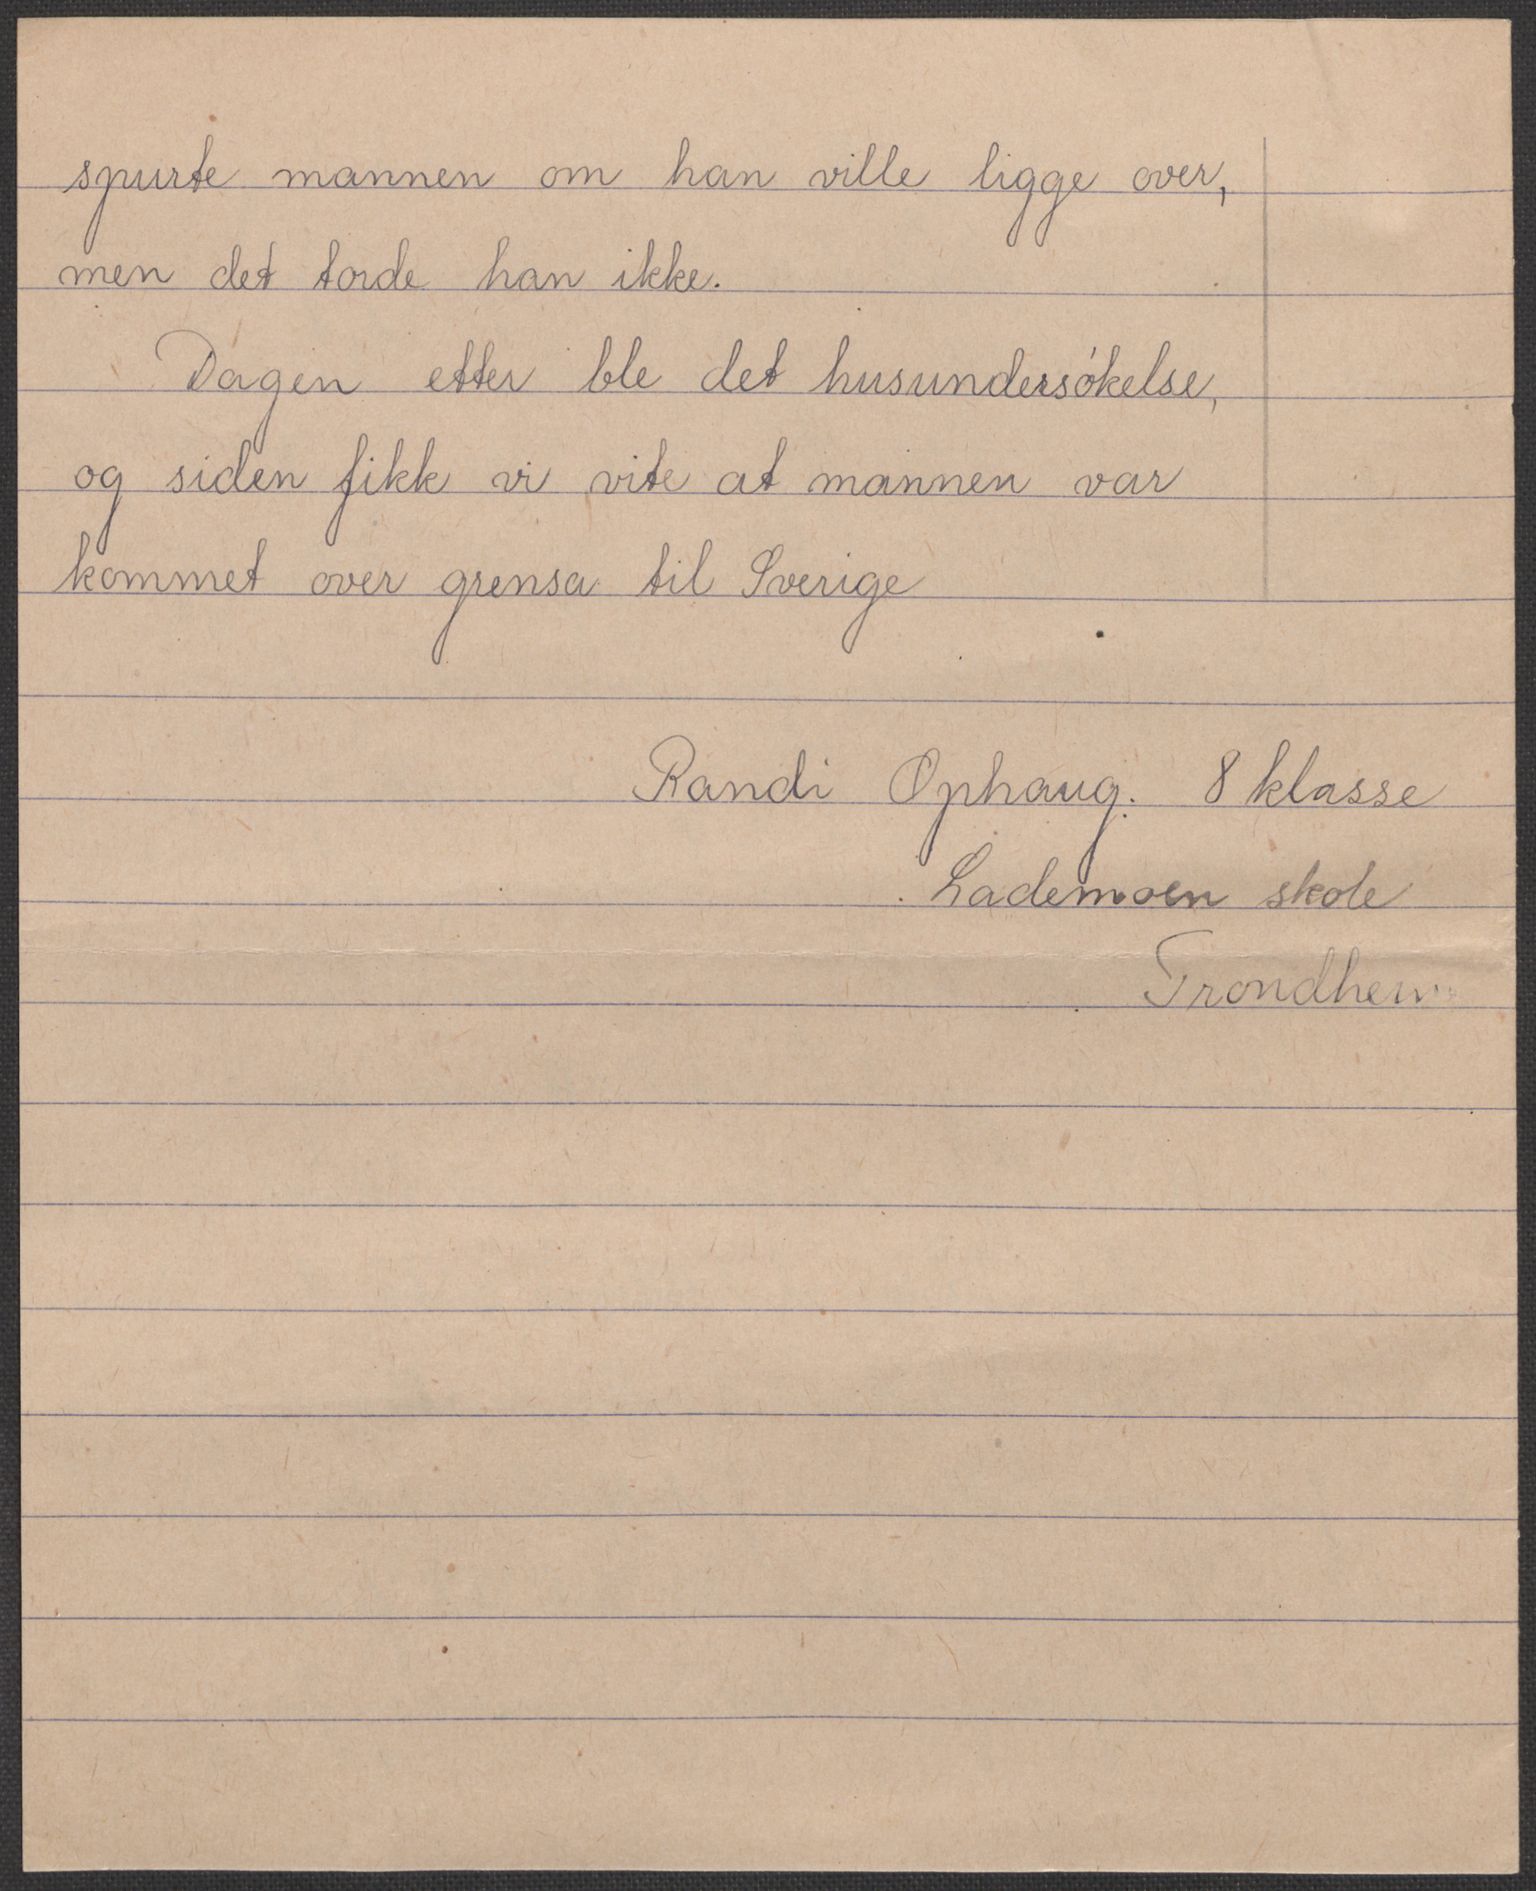 spurte mannen om han ville ligge over,
men det torde han ikke.
Dagen etter ble det husundersókelse,
og siden fikk vi vite at mannen var
kommet over grensa til Sverige
Randi Ophaug. 8 klasse
Lademoen skole
Trondheim